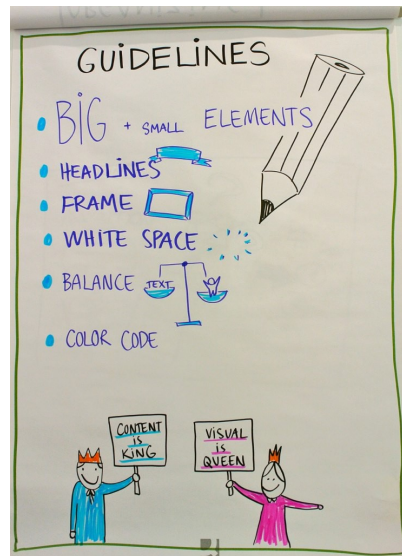 GUIDELINES
BIG + SMALL ELEMENTS
HEADLINES
FRAME
WHITE SPACE
BALANCE TEXT
COLOR CODE
CONTENT
iS
KiNG
ViSUAL
iS
QUEEN